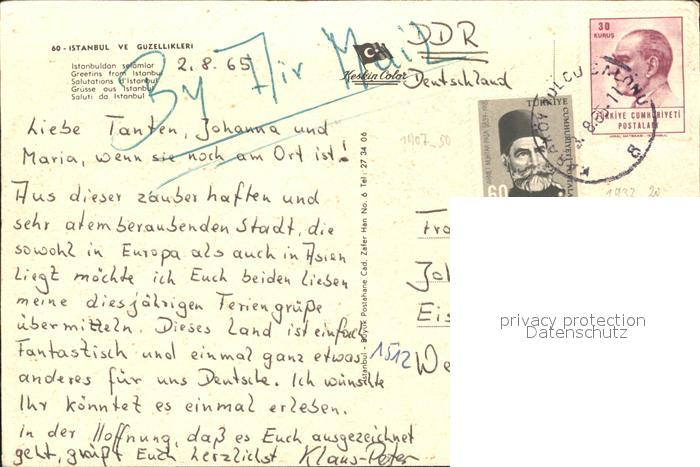 60 - ISTANBUL VE GÜZELLIKLERI
Istanbuldan selâmlar
Greetins from Istanbul
Salutations d'Istanbul
Grüsse aus Istanbul
Saluti da Istanbul
2.8.65
By Air Mail
Keskin Color
DDR
Deutschland
30
KURUŞ
TÜRKİYE CUMHURİYETİ
POSTALARI
TÜRKİYE
CUMHURİYETİ POSTALARI
60
Liebe Tanten, Johanna und
Maria, wenn sie noch am Ort ist!
Aus dieser zauberhaften und
sehr atemberaubenden Stadt, die
sowohl in Europa als auch in Asien
liegt möchte ich Euch beiden Lieben
meine diesjährigen Feriengrüße
übermitteln. Dieses Land ist einfach
Fantastisch und einmal ganz etwas
anderes für uns Deutsche. Ich wünschte
Ihr könntet es einmal erleben.
In der Hoffnung, daß es Euch ausgezeichnet
geht, grüßt Euch herzlichst Klaus-Peter
Istanbul - Büyük Postahane Cad. Zafer Han No. 6 Tel: 27 34 06
Fra
Joh
Eis
1512 We
privacy protection
Datenschutz